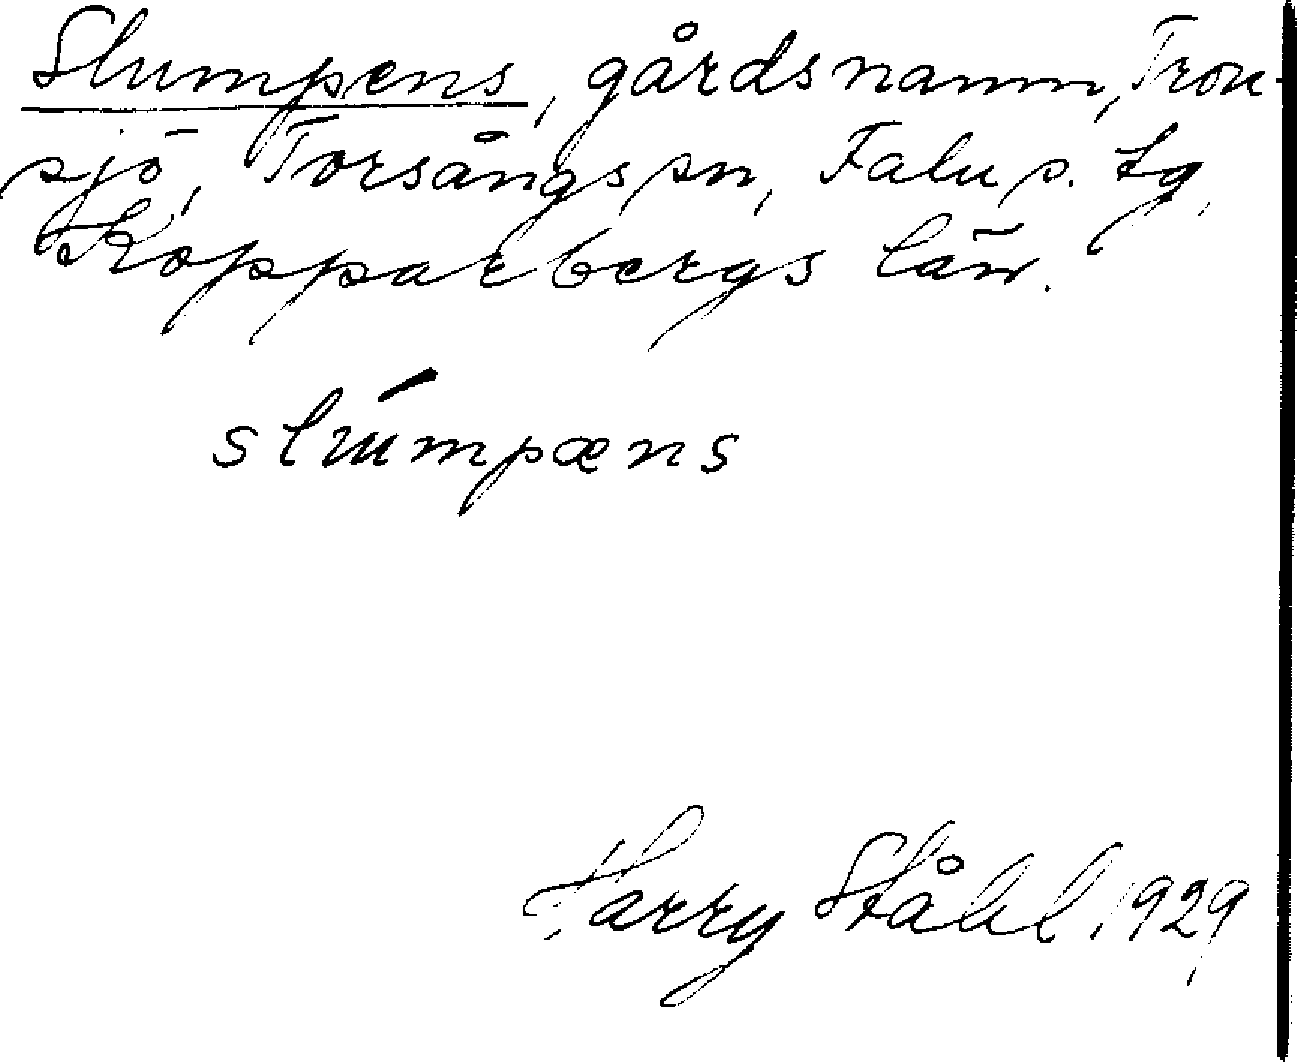 Slumpens, gårdsnamn, Tron-
sjö, Torsångs sn, Falu s. tg,
Kopparbergs län.
slúmpæns
Harry Ståhl 1929